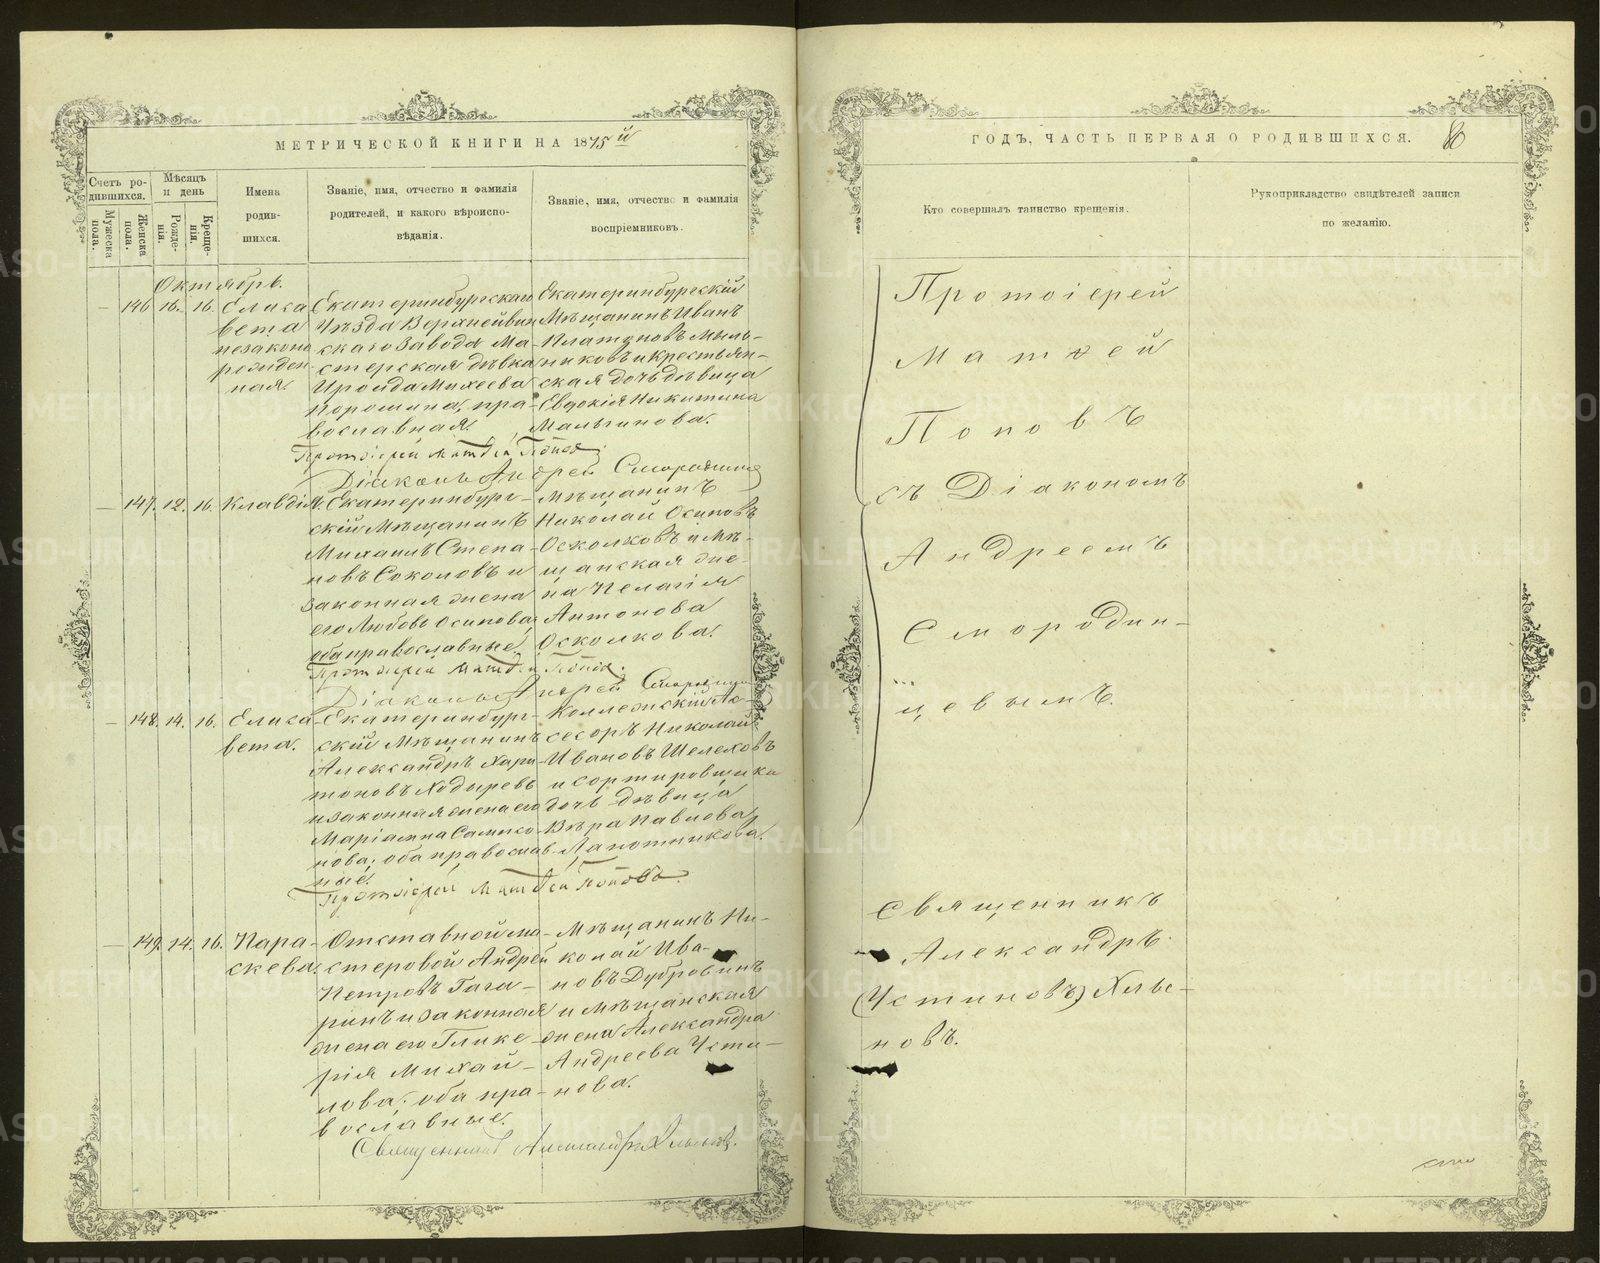 МЕТРИЧЕСКОЙ КНИГИ НА 1875й
Счетъ родившихся.
Мужеска пола.
Женска пола.
Мѣсяцъ и день
Рожденія.
Крещенія.
Имена родившихся.
Званіе, имя, отчество и фамилія
родителей, и какого вѣроиспо-
вѣданія.
Званіе, имя, отчество и фамилія
воспріемниковъ.
Октябрь.
— 146 16. 16. Елиса
вета
незаконо
рожден
ная.
Екатеринбургскаго
Уѣзда Верхнейвин
скаго Завода Ма-
стерская дѣвка
Ироида Михеева
Поромина, пра-
вославная.
Екатеринбургскій
Мѣщанинъ Иванъ
Платоновъ Мыль-
никовъ и Крестьян-
ская дочь дѣвица
Евдокія Никитина
Мальгинова.
Протоіерей Матѳей Поповъ
Діаконъ Андрей Смородинц
— 147. 12. 16. Клавдія.
Екатеринбург-
скій Мѣщанинъ
Михаилъ Степа-
новъ Соколовъ и
законная жена
его Любовь Осипова,
оба православные.
Мѣщанинъ
Николай Осиповъ
Осколковъ и Мѣ-
щанская же-
на Пелагія
Антонова
Осколкова.
Протоіерей Матѳей Поповъ.
Діаконъ Андрей Смородинц
— 148. 14. 16. Елиса
вета.
Екатеринбург-
скій Мѣщанинъ
Александръ Хари-
тоновъ Ходыревъ
и законная жена его
Маріамна Самсо-
нова; оба православ-
ные.
Коллежскій Ас-
сесоръ Николай
Ивановъ Шелеховъ
и сортировщика
дочь дѣвица
Вѣра Павлова
Лапотникова.
Протоіерей Матѳей Поповъ.
— 149. 14. 16. Пара-
скева.
Отставной ма-
стеровой Андрей
Петровъ Гага-
ринъ и законная
жена его Глике-
рія Михай-
лова; оба пра-
вославные.
Мѣщанинъ Ни-
колай Ива-
новъ Дубровинъ
и Мѣщанская
жена Александра
Андреева Усти-
нова.
Священникъ Александръ Хлыновъ.
ГОДЪ, ЧАСТЬ ПЕРВАЯ О РОДИВШИХСЯ.
Кто совершалъ таинство крещенія.
Рукоприкладство свидѣтелей записи
по желанію.
Протоіерей
Матѳей
Поповъ
съ Діакономъ
Андреемъ
Смородин-
цевымъ.
Священникъ
Александръ
(Устиновъ) Хлы-
новъ.
METRIKI.GASO-URAL.RU